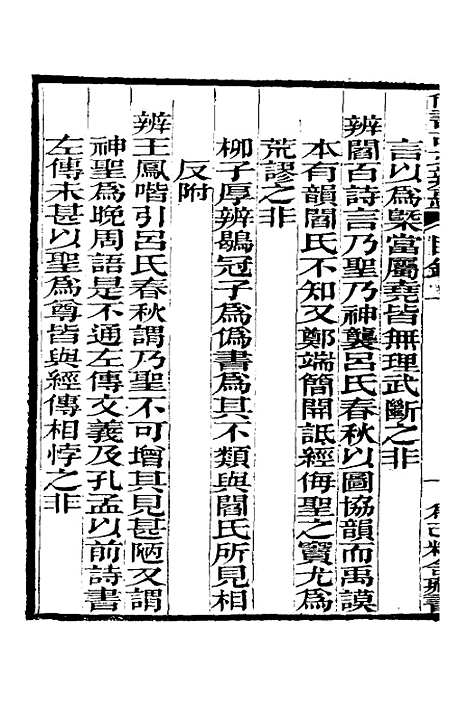 言以爲槩當屬堯皆無理武斷之非
辨閻百詩言乃聖乃神襲呂氏春秋以圖協韻而禹謨
本有韻閻氏不知又鄭端簡開詆經侮聖之竇尤爲
荒謬之非
柳子厚辨鶡冠子爲僞書爲其不類與閻氏所見相
反附
辨王鳳喈引呂氏春秋謂乃聖不可增其見甚陋又謂
神聖爲晚周語是不通左傳文義及孔孟以前詩書
左傳未甚以聖爲尊皆與經傳相悖之非